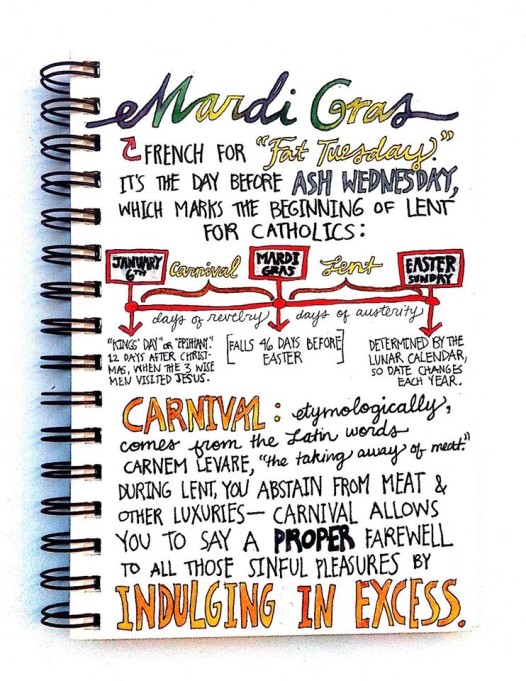 Mardi Gras
FRENCH FOR "Fat Tuesday."
IT'S THE DAY BEFORE ASH WEDNESDAY,
WHICH MARKS THE BEGINNING OF LENT
FOR CATHOLICS:
JANUARY
6TH
Carnival
MARDI
GRAS
Lent
EASTER
SUNDAY
days of revelry
days of austerity
"KINGS' DAY" OR "EPIPHANY."
12 DAYS AFTER CHRIST-
MAS, WHEN THE 3 WISE
MEN VISITED JESUS.
[FALLS 46 DAYS BEFORE
EASTER]
DETERMINED BY THE
LUNAR CALENDAR,
SO DATE CHANGES
EACH YEAR.
CARNIVAL: etymologically,
comes from the Latin words
CARNEM LEVARE, "the taking away of meat."
DURING LENT, YOU ABSTAIN FROM MEAT &
OTHER LUXURIES— CARNIVAL ALLOWS
YOU TO SAY A PROPER FAREWELL
TO ALL THOSE SINFUL PLEASURES BY
INDULGING IN EXCESS.